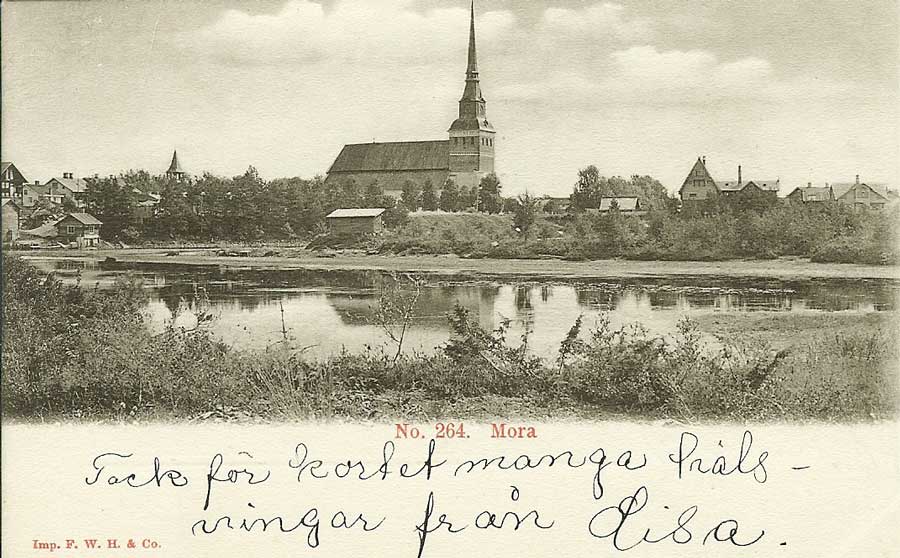 No. 264. Mora
Tack för kortet manga häls-
ningar från Lisa.
Imp. F. W. H. & Co.